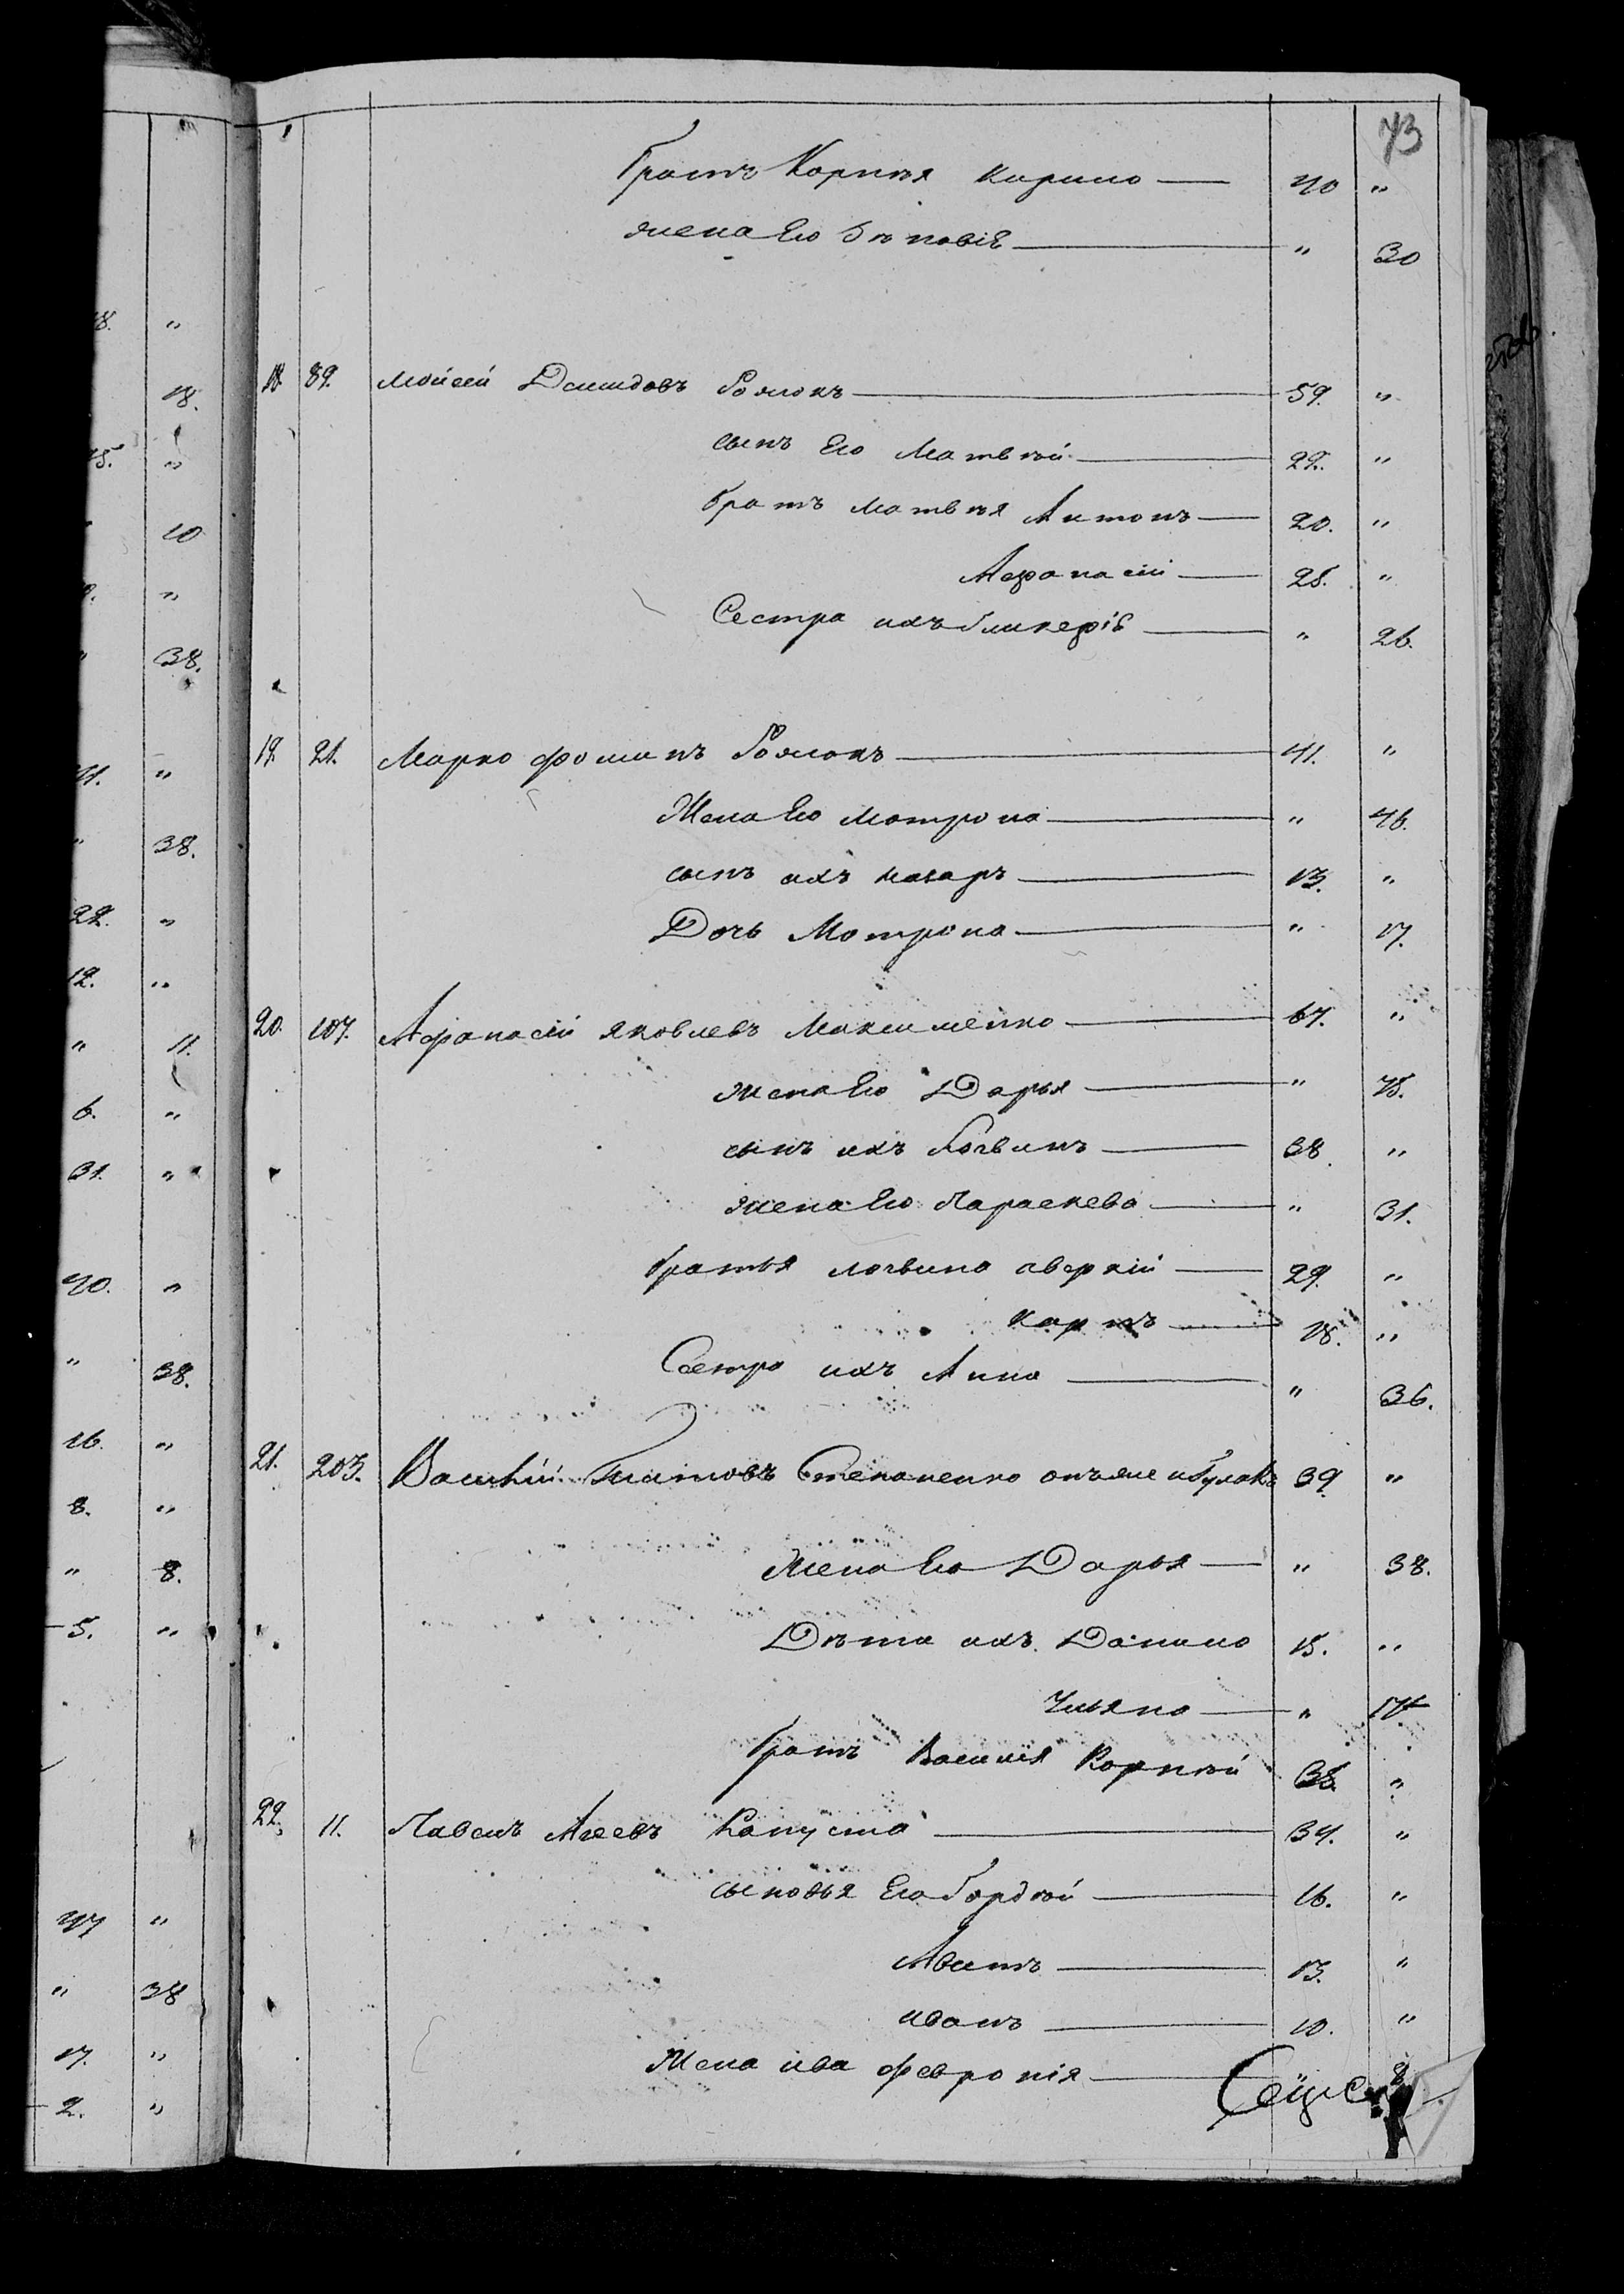 73
братъ Корнѣя Кирило — 40 "
жена Его — " 30
18. 89. Мойсей Демидовъ — 59. "
сынъ Его Матвѣй — 22. "
братъ Матвѣя Антонъ — 20. "
Афанасій — 25. "
Сестра ихъ Гликерія — " 26.
19. 21. Марко Фоминъ — 41. "
Жена Его Матрона — " 46.
сынъ ихъ Назаръ — 13. "
Дочь Матрона — " 17.
20. 107. Афанасій Яковлевъ Максименко — 67. "
жена Его Дарья — " 75.
сынъ ихъ Логвинъ — 38. "
жена Его Параскева — " 31.
братья Логвина Аверкій — 29. "
Карпъ — 18. "
Сестра ихъ Анна — " 36.
21. 203. Василій Титовъ Степаненко онъ же 39. "
Жена Его Дарья — " 38.
Дѣти ихъ Данило 15. "
Ульяна — " 14
братъ Василія Корнѣй 35. "
22. 11. Павелъ Агеевъ Капуста — 34. "
сыновья Его Гордѣй — 16. "
— 13. "
Иванъ — 10. "
Жена Феронія —
18.
" 18.
15. "
" 10
"
" 38.
41. "
" 38.
22. "
12. "
" 11.
6. "
31. "
40. "
" 38.
16. "
8. "
" 8.
5. "
47 "
" 38
17. "
2. "